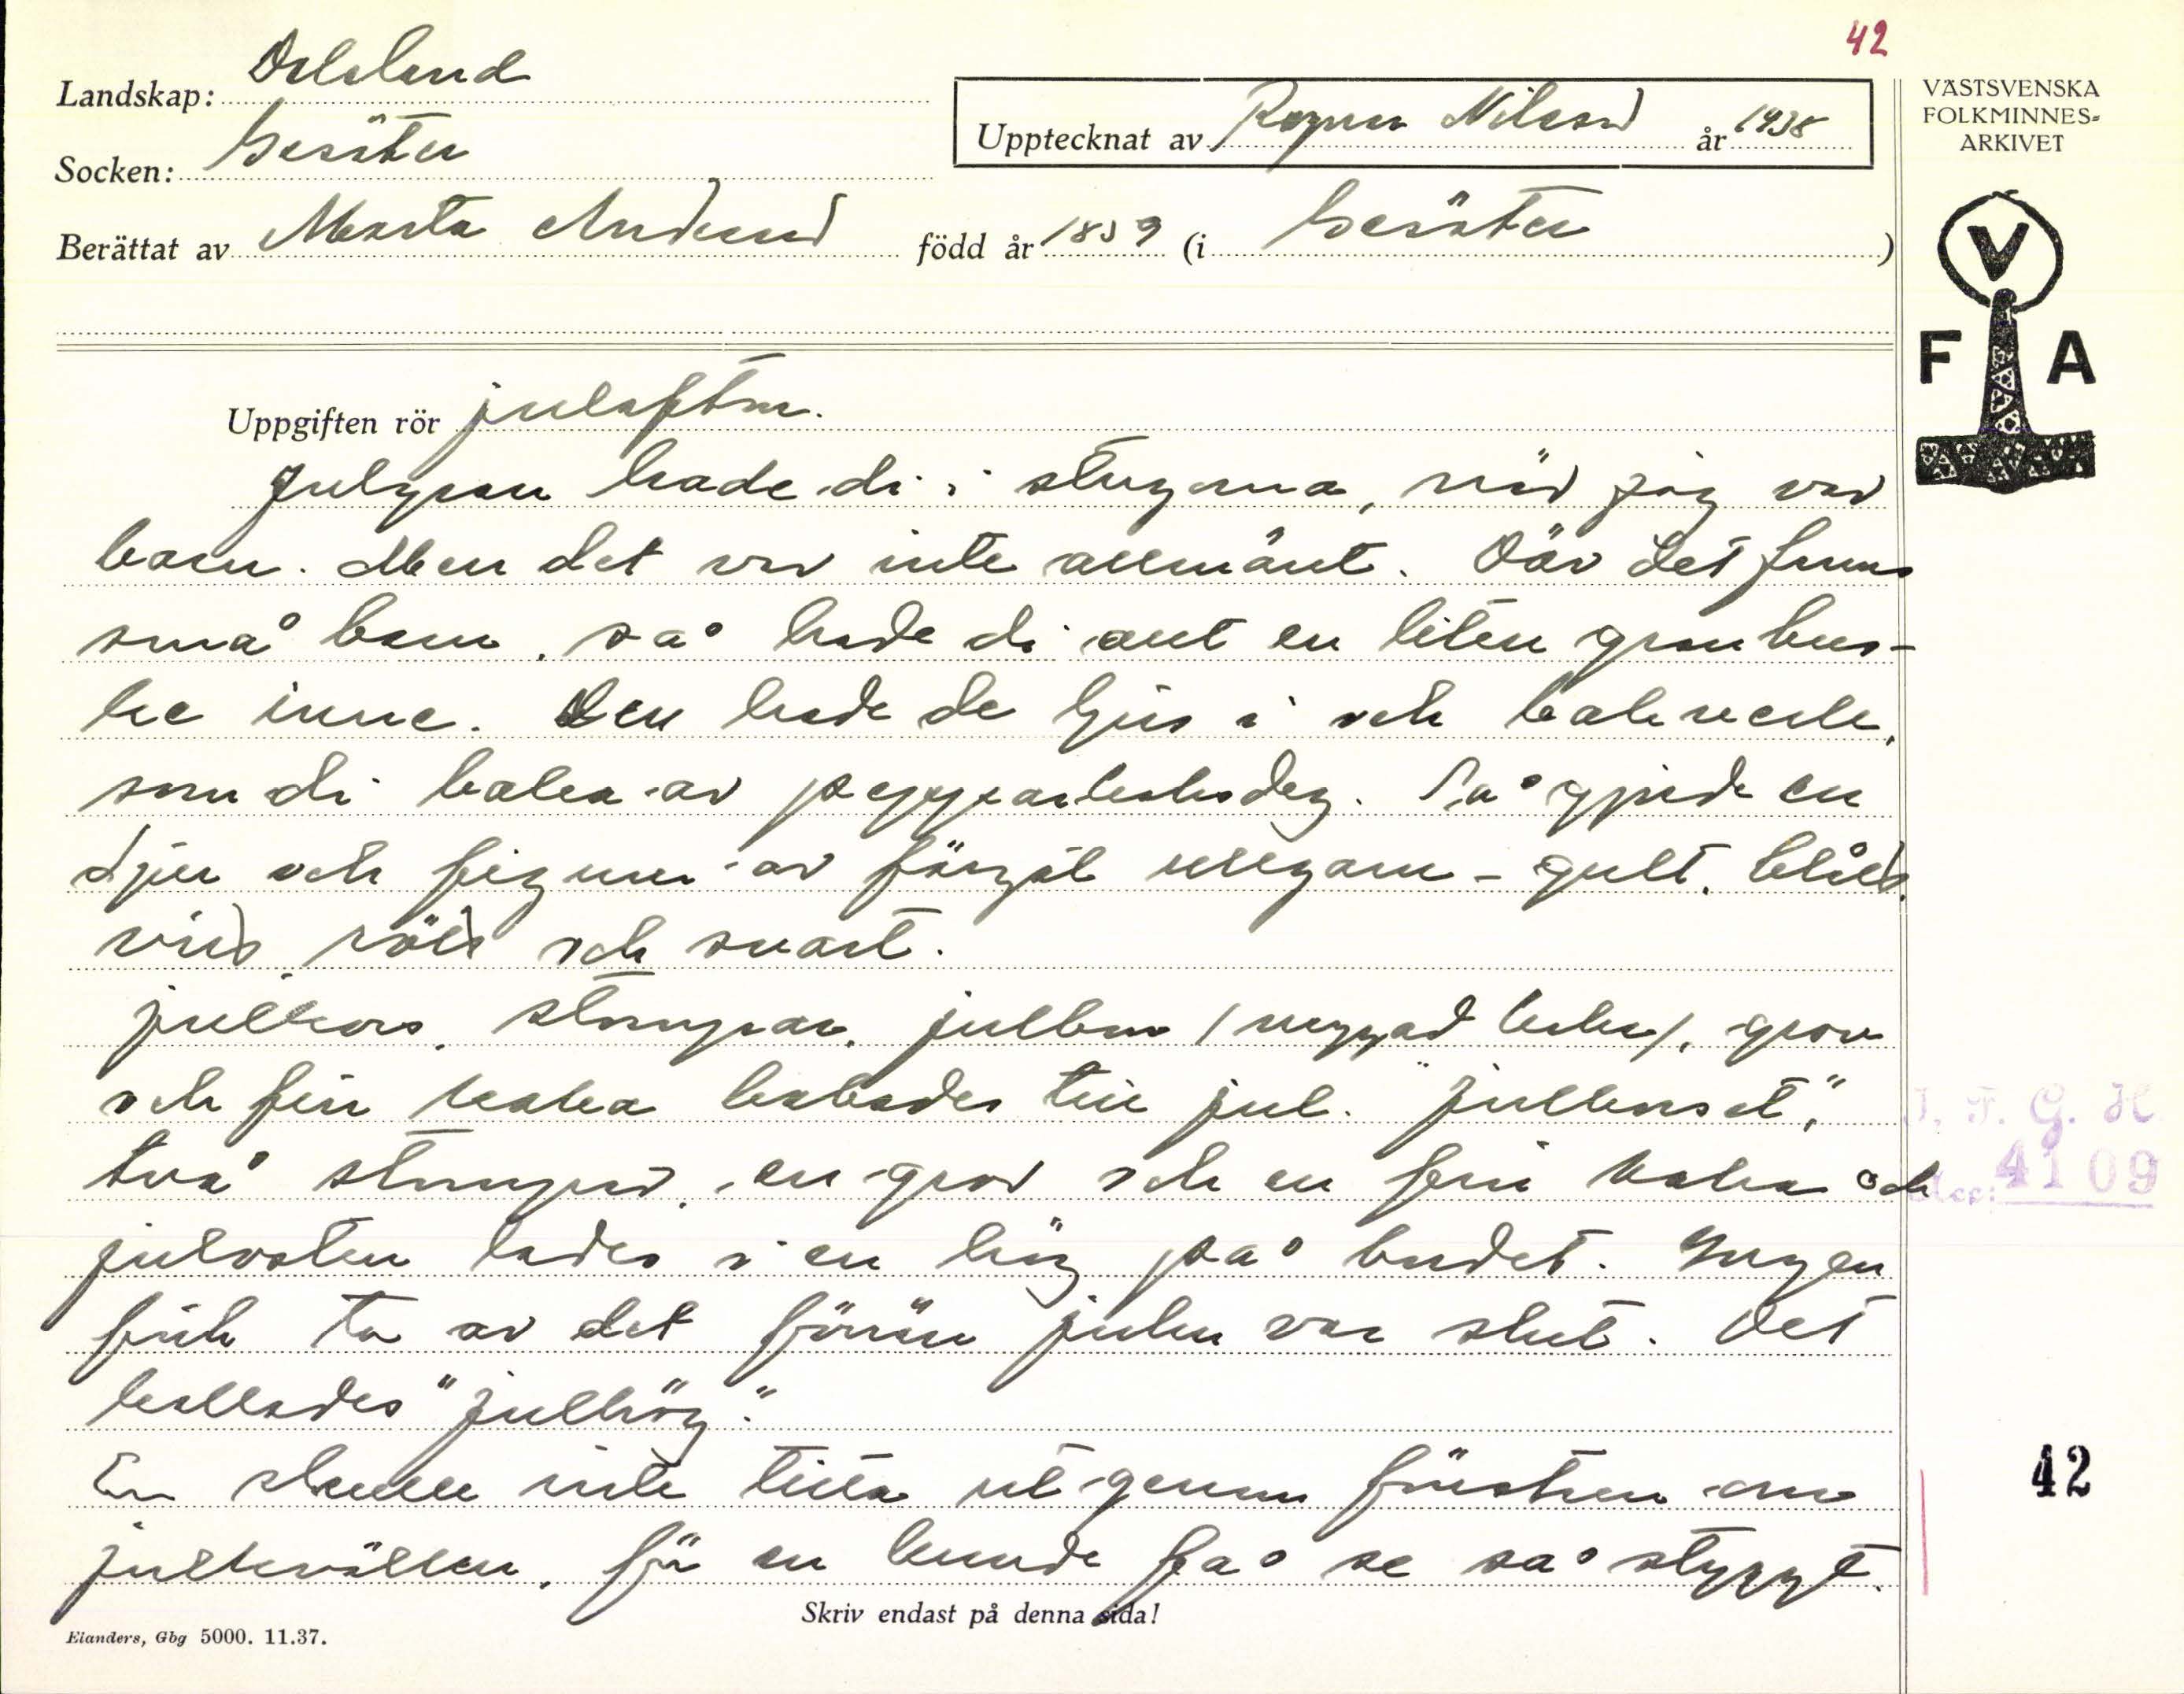 42
Landskap: Dalsland
Socken: Gesäter
Upptecknat av Ragnar Nilsson år 1938
Berättat av Marta Andersson född år 1859 (i Gesäter)
VÄSTSVENSKA
FOLKMINNES=
ARKIVET
V
F A
Uppgiften rör julafton.
Julgran hade di i stugorna, när jag var
barn. Men det var inte allmänt. Där det fanns
små barn, så hade di allt en liten granbus-
ke inne. Den hade de ljus i och bakverk,
som di baka av pepparkaksdeg. Så gjorde en
djur och figurer av färgat ullgarn - gult, blått,
vitt, rött och svart.
julkors, stompar, julbröd (naggad kaka), grov
och fin kaka bakades till jul. "Julkorset",
två stompar, en grov och en fin kaka och
julosten lades i en hög på bordet. Ingen
fick ta av det förrän julen var slut. Det
kallades "julhög".
En skulle inte titta ut genom fönstren om
julkvällen, för en kunde få se så styggt.
I. F. G. H.
Acc: 4109
42
Skriv endast på denna sida!
Elanders, Gbg 5000. 11.37.